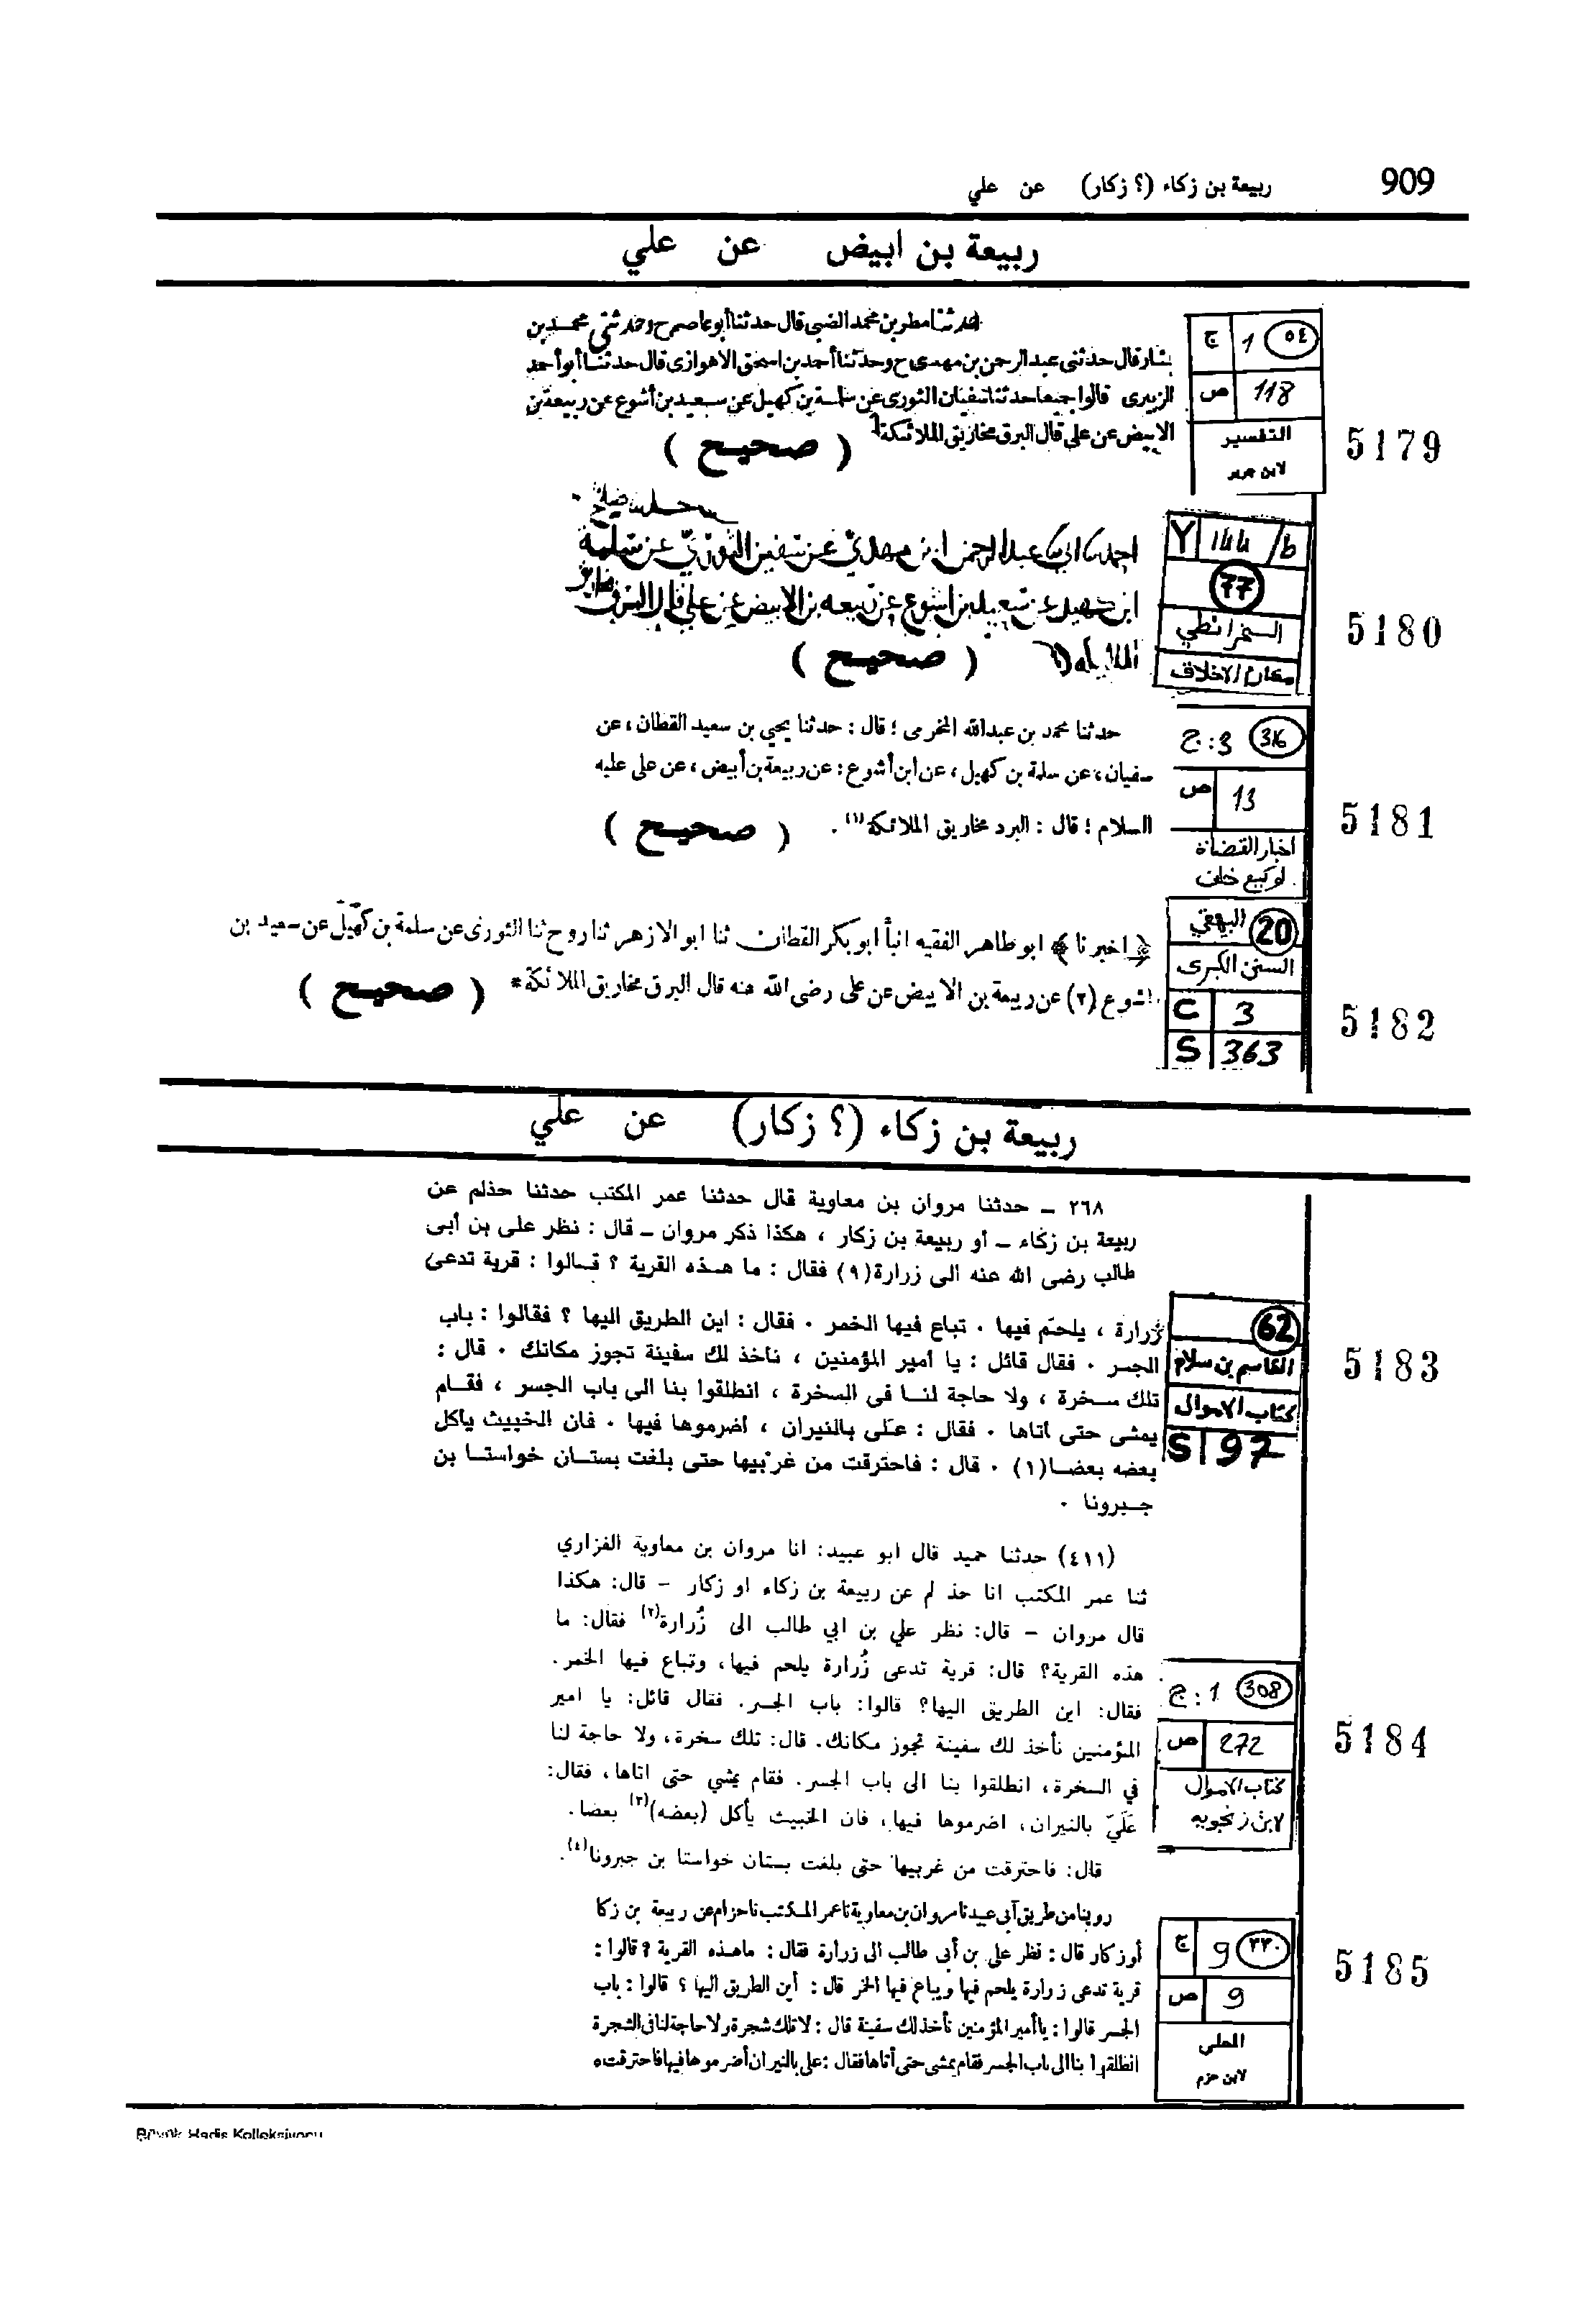 909 ربيعة بن زكاء (؟ زكار) عن علي
ربيعة بن ابيض عن علي
حدثنا مطر بن محمد الضبي قال حدثنا أبو عاصم ح وحدثني محمد بن
بشار قال حدثني عبد الرحمن بن مهدي ح وحدثنا أحمد بن اسحق الاهوازي قال حدثنا أبو أحمد
الزبيري قالوا جميعا حدثنا سفيان الثوري عن سلمة بن كهيل عن سعيد بن أشوع عن ربيعة بن
الابيض عن علي قال البرق مخاريق الملائكة
( صحيح )
٥٤ 1 ج
118 ص
التفسير
لابن جرير
5179
عبد الرحمن ابن مهدي عن سفين الثوري عن سلمة
ابن كهيل عن سعيد بن اشوع عن ربيعه بن الابيض عن علي قال البرق
( صحيح )
Y 144/b
77
الخرائطي
مكارم الاخلاق
5180
حدثنا محمد بن عبدالله المخرمى ؛ قال : حدثنا يحيي بن سعيد القطان ، عن
سفيان ، عن سلمة بن كهيل ، عن ابن أشوع : عن ربيعة بن أبيض ، عن على عليه
السلام ؛ قال : البرد مخاريق الملائكة (١) .
( صحيح )
316 3 : ج
13 ص
اخبار القضاة
لوكيع خلف
5181
﴿ اخبرنا ﴾ ابو طاهر الفقيه انبأ ابو بكر القطان ثنا ابو الازهر ثنا روح ثنا الثورى عن سلمة بن كهيل عن سعيد بن
اشوع (٢) عن ربيعة بن الابيض عن على رضى الله عنه قال البرق مخاريق الملائكة *
( صحيح )
20 البيهقي
السنن الكبرى
C 3
S 363
5182
ربيعة بن زكاء (؟ زكار) عن علي
٢٦٨ – حدثنا مروان بن معاوية قال حدثنا عمر المكتب حدثنا حذلم عن
ربيعة بن زكاء – أو ربيعة بن زكار ، هكذا ذكر مروان – قال : نظر على بن أبى
طالب رضى الله عنه الى زرارة(٩) فقال : ما هذه القرية ؟ قالوا : قرية تدعى
زرارة ، يلحم فيها ٠ تباع فيها الخمر ٠ فقال : اين الطريق اليها ؟ فقالوا : باب
الجسر ٠ فقال قائل : يا أمير المؤمنين ، نأخذ لك سفينة تجوز مكانك ٠ قال :
تلك سخرة ، ولا حاجة لنا فى السخرة ، انطلقوا بنا الى باب الجسر ، فقام
يمشى حتى أتاها ٠ فقال : على بالنيران ، اضرموها فيها ٠ فان الخبيث يأكل
بعضه بعضا(١) ٠ قال : فاحترقت من غربيها حتى بلغت بستان خواستا بن
جبرونا ٠
62
القاسم بن سلام
كتاب الاموال
S 97
5183
(٤١١) حدثنا حميد قال ابو عبيد: انا مروان بن معاوية الفزاري
ثنا عمر المكتب انا حذ لم عن ربيعة بن زكاء او زكار – قال: هكذا
قال مروان – قال: نظر علي بن ابي طالب الى زُرارة(٢) فقال: ما
هذه القرية؟ قال: قرية تدعى زُرارة يلحم فيها، وتباع فيها الخمر.
فقال: اين الطريق اليها؟ قالوا: باب الجسر. فقال قائل: يا امير
المؤمنين نأخذ لك سفينة تجوز مكانك. قال: تلك سخرة، ولا حاجة لنا
في السخرة، انطلقوا بنا الى باب الجسر. فقام يمشي حتى اتاها، فقال:
عَلَيّ بالنيران، اضرموها فيها، فان الخبيث يأكل (بعضه)(٣) بعضا.
قال: فاحترقت من غربيها حتى بلغت بستان خواستا بن جبرونا(٤).
308 1 : ج
272 ص
كتاب الاموال
لابن زنجويه
5184
روينا من طريق أبى عبيد نا مروان بن معاوية نا عمر المكتب نا حزام عن ربيعة بن زكا
أو زكار قال : نظر على بن أبى طالب الى زرارة فقال : ما هذه القرية ؟ قالوا :
قرية تدعى زرارة يلحم فيها ويباع فيها الخمر قال : أين الطريق اليها ؟ قالوا : باب
الجسر قالوا : يا أمير المؤمنين نأخذ لك سفينة قال : لا تلك شجرة ولا حاجة لنا فى الشجرة
انطلقوا بنا الى باب الجسر فقام يمشى حتى أتاها فقال : على بالنيران أضرموها فيها فاحترقت ه
٣٣٠ 9 ج
9 ص
المحلي
لابن حزم
5185
Büyük Hadis Kolleksiyonu